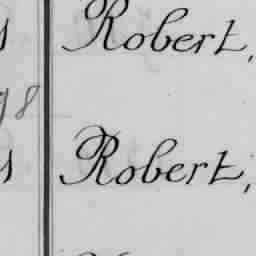 Robert,
98
Robert,